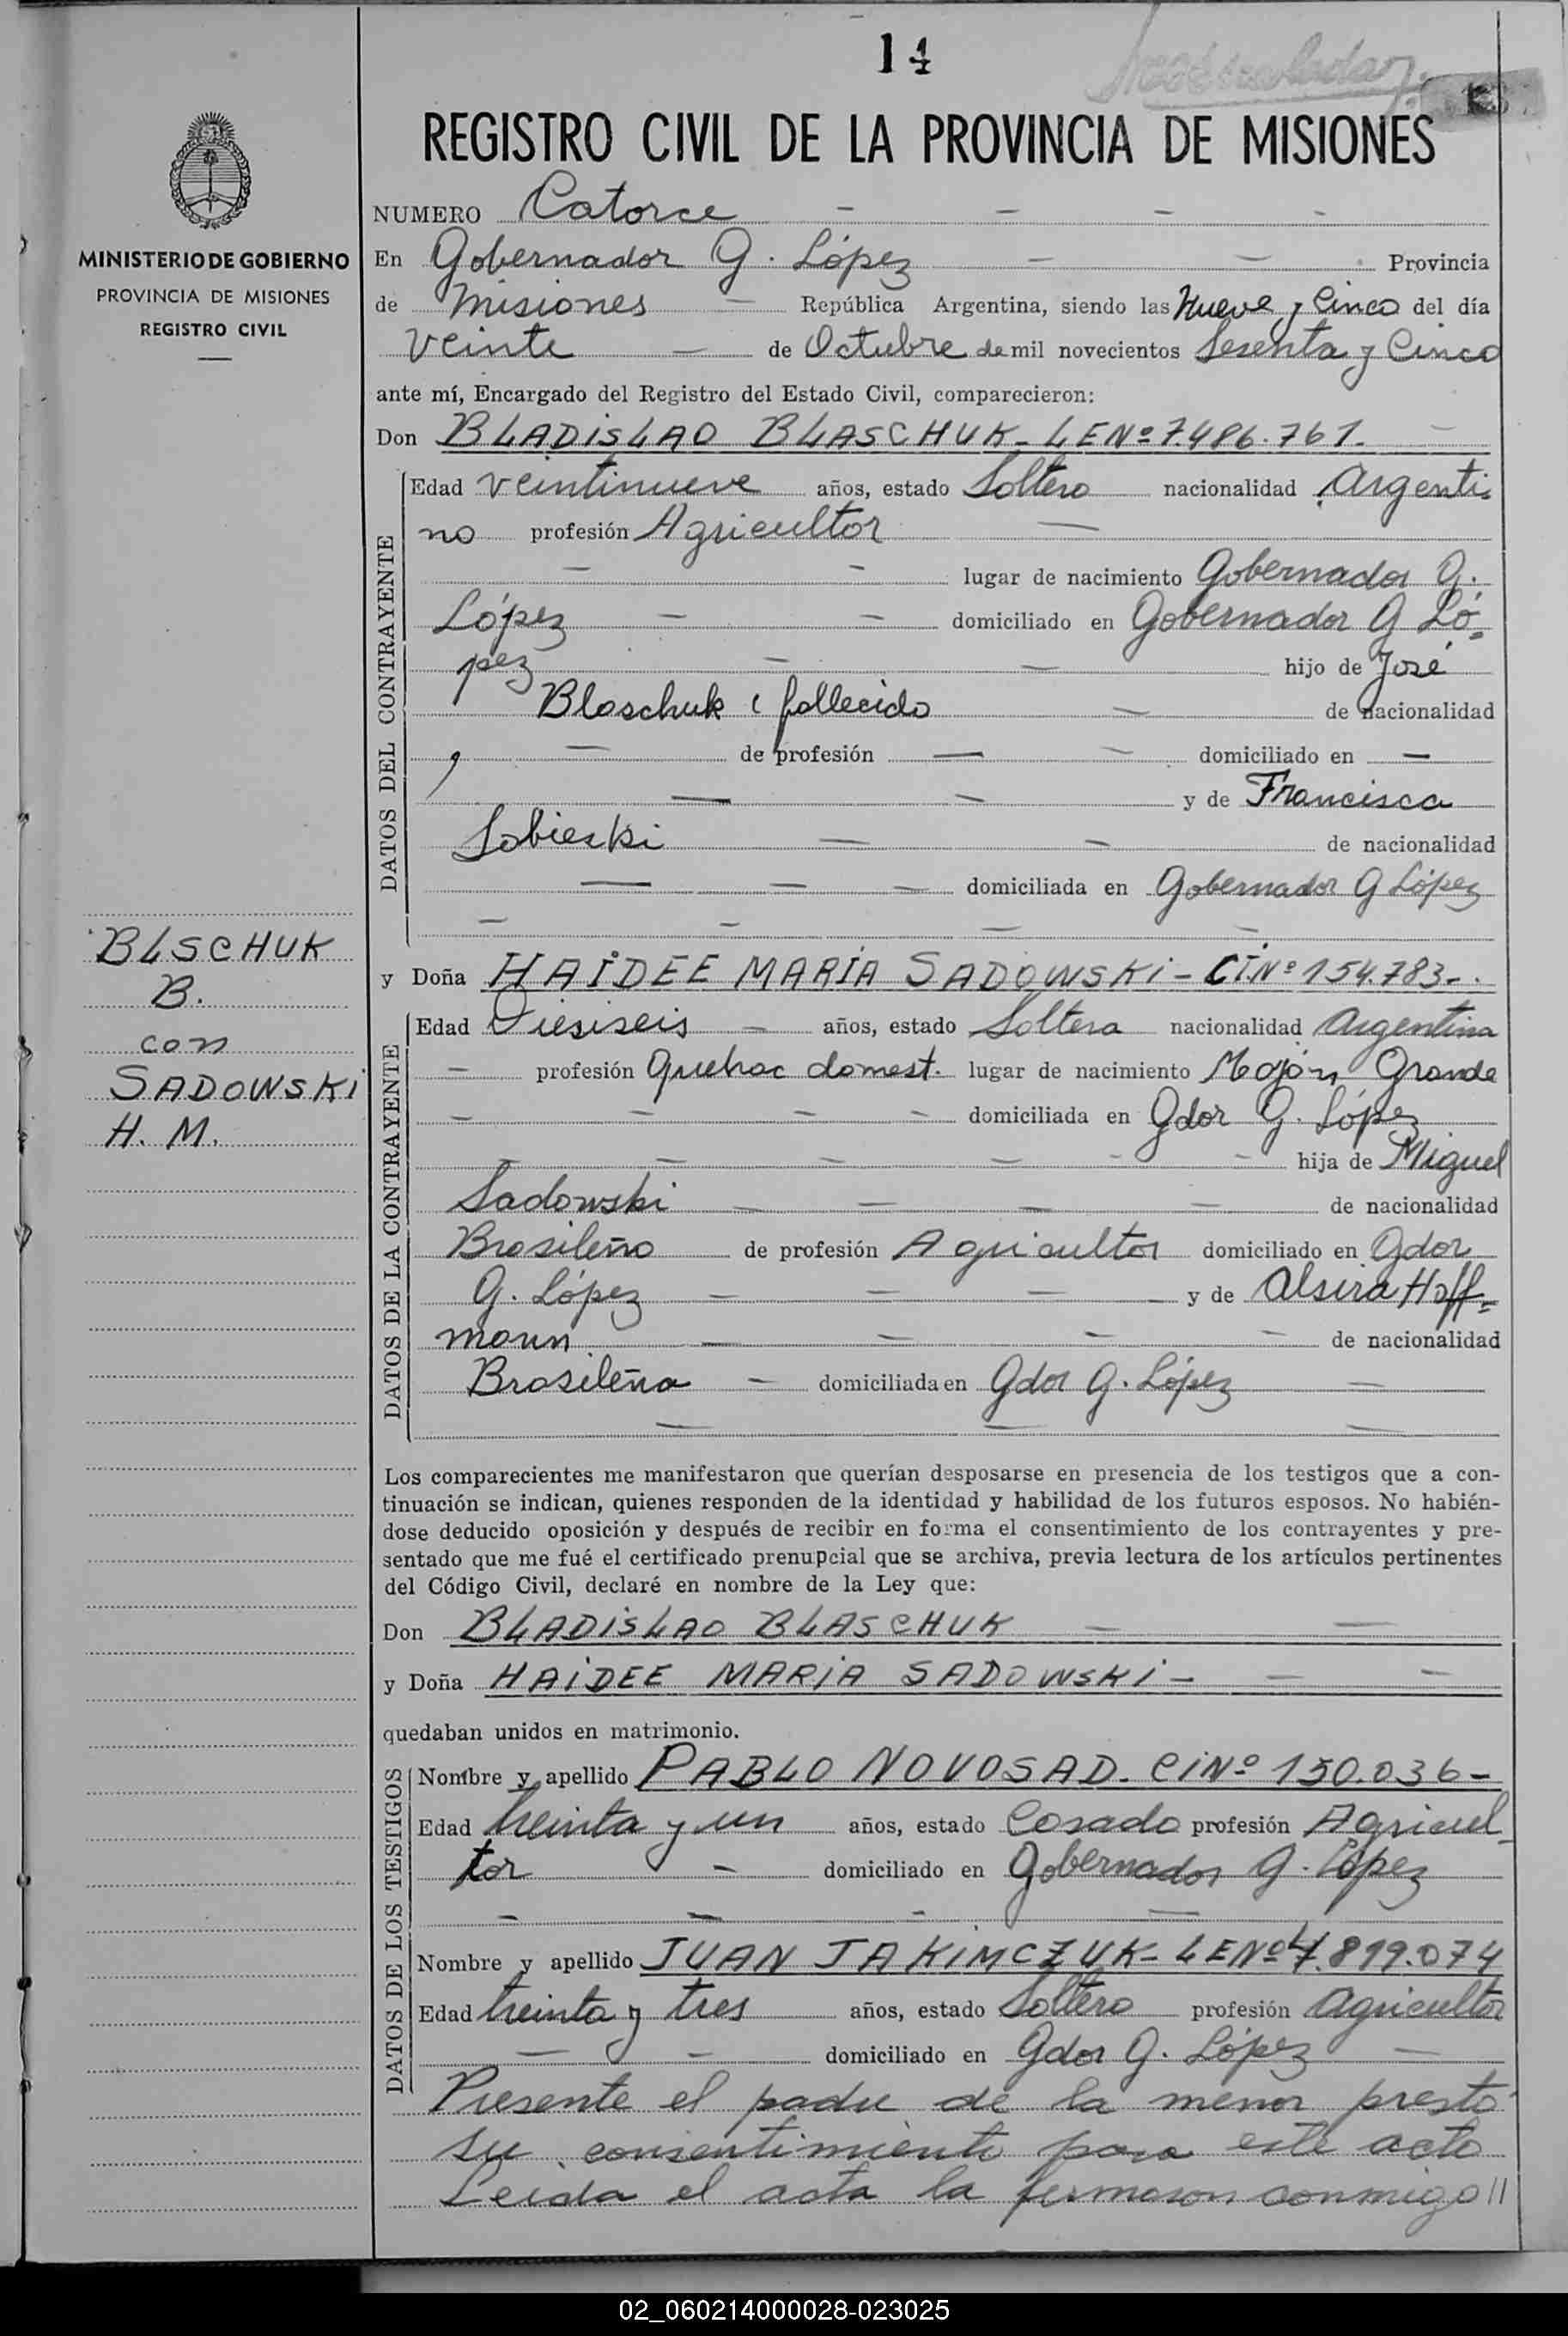 14
REGISTRO CIVIL DE LA PROVINCIA DE MISIONES
MINISTERIO DE GOBIERNO
PROVINCIA DE MISIONES
REGISTRO CIVIL
BLSCHUK
B.
con
SADOWSKI
H. M.
NUMERO Catorce - - - -
En Gobernador G. López - - Provincia
de Misiones - República Argentina, siendo las Nueve y Cinco del día
Veinte - de Octubre de mil novecientos Sesenta y Cinco
ante mí, Encargado del Registro del Estado Civil, comparecieron:
Don BLADISLAO BLASCHUK - LE Nº 7.486.761. -
DATOS DEL CONTRAYENTE
Edad veintinueve años, estado Soltero nacionalidad Argenti-
no profesión Agricultor -
- - lugar de nacimiento Gobernador G.
López - - domiciliado en Gobernador G Ló-
pez - - hijo de José
Blaschuk (fallecido - de nacionalidad
, - de profesión - - domiciliado en -
- - y de Francisca
Sobieski - - de nacionalidad
- - - domiciliada en Gobernador G López
- - - -
y Doña HAIDEE MARIA SADOWSKI - C.I. Nº 154.783-.
DATOS DE LA CONTRAYENTE
Edad Diesiseis - años, estado Soltera nacionalidad Argentina
- profesión Quehac domest. lugar de nacimiento Mojón Grande
- - - - domiciliada en Gdor G. López
- - - - - - hija de Miguel
Sadowski - - - - de nacionalidad
Brasileño de profesión Agricultor domiciliado en Gdor
G. López - - - y de Alsira Hoff=
mann - - - - de nacionalidad
Brasileña - domiciliada en Gdor G. López -
- - -
Los comparecientes me manifestaron que querían desposarse en presencia de los testigos que a con-
tinuación se indican, quienes responden de la identidad y habilidad de los futuros esposos. No habién-
dose deducido oposición y después de recibir en forma el consentimiento de los contrayentes y pre-
sentado que me fué el certificado prenupcial que se archiva, previa lectura de los artículos pertinentes
del Código Civil, declaré en nombre de la Ley que:
Don BLADISLAO BLASCHUK - -
y Doña HAIDEE MARIA SADOWSKI - - -
quedaban unidos en matrimonio.
DATOS DE LOS TESTIGOS
Nombre y apellido PABLO NOVOSAD. CI Nº 150.036-
Edad treinta y un años, estado Casado profesión Agricul-
tor - domiciliado en Gobernador G. López
- - - -
Nombre y apellido JUAN JAKIMCZUK - LE Nº .819.074
Edad treinta y tres años, estado Soltero profesión Agricultor
- - domiciliado en Gdor G. López -
Presente el padre de la menor prestó
su consentimiento para este acto
Leida el acta la firmaron conmigo//
02_060214000028-023025